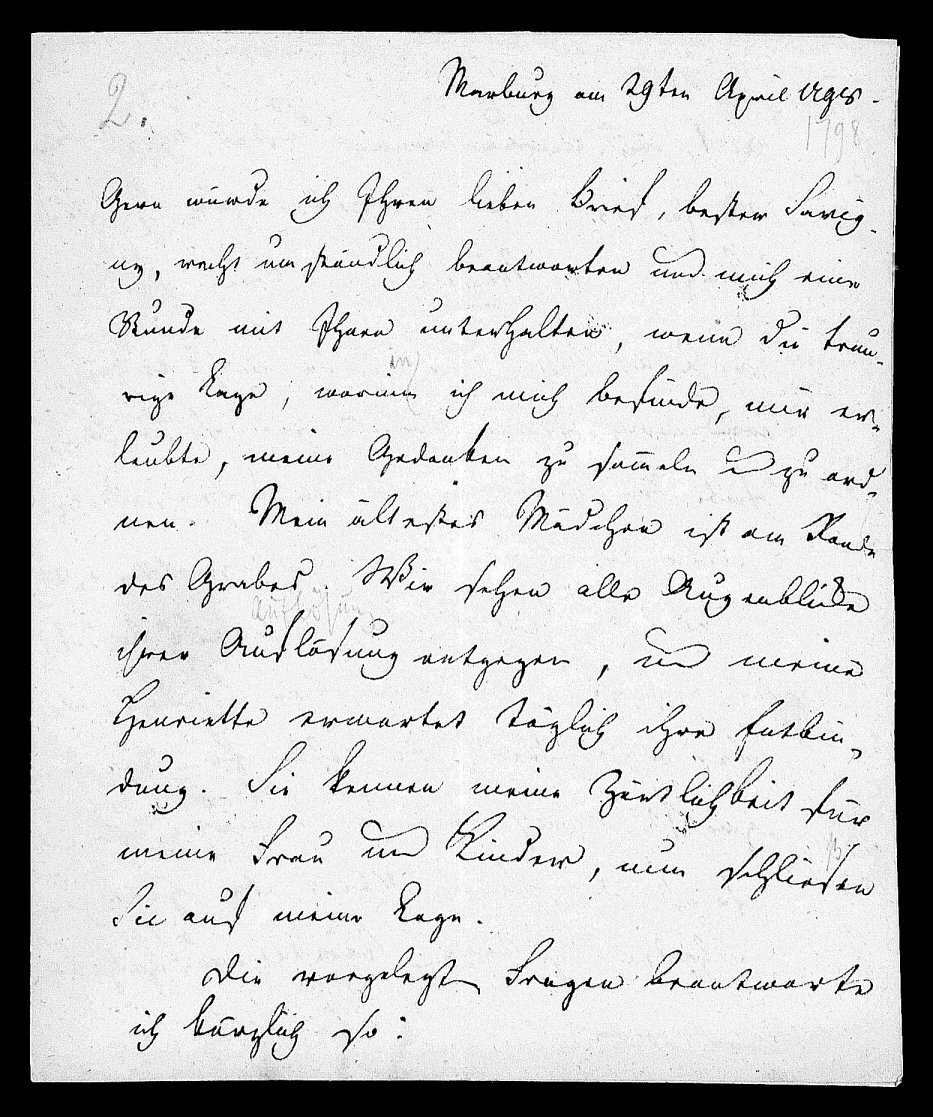 2.
Marburg am 29ten April 1798.
1798
Gern würde ich Ihren lieben Brief, bester Savig-
ny, recht umständlich beantworten und mich eine
Stunde mit Ihnen unterhalten, wenn die trau-
(in)
rige Lage, worinn ich mich befinde, mir er-
laubte, meine Gedanken zu sam̅eln u zu ord-
nen. Mein ältestes Mädchen ist am Rande
des Grabes. Wir sehen alle Augenblicke
Auflösung
ihrer Auflösung entgegen, und meine
Henriette erwartet täglich ihre Entbin-
dung. Sie kennen meine Zärtlichkeit für
meine Frau und Kinder, nun schliesen
ß
Sie auf meine Lage.
Die vorgelegten Fragen beantworte
ich kürzlich so: